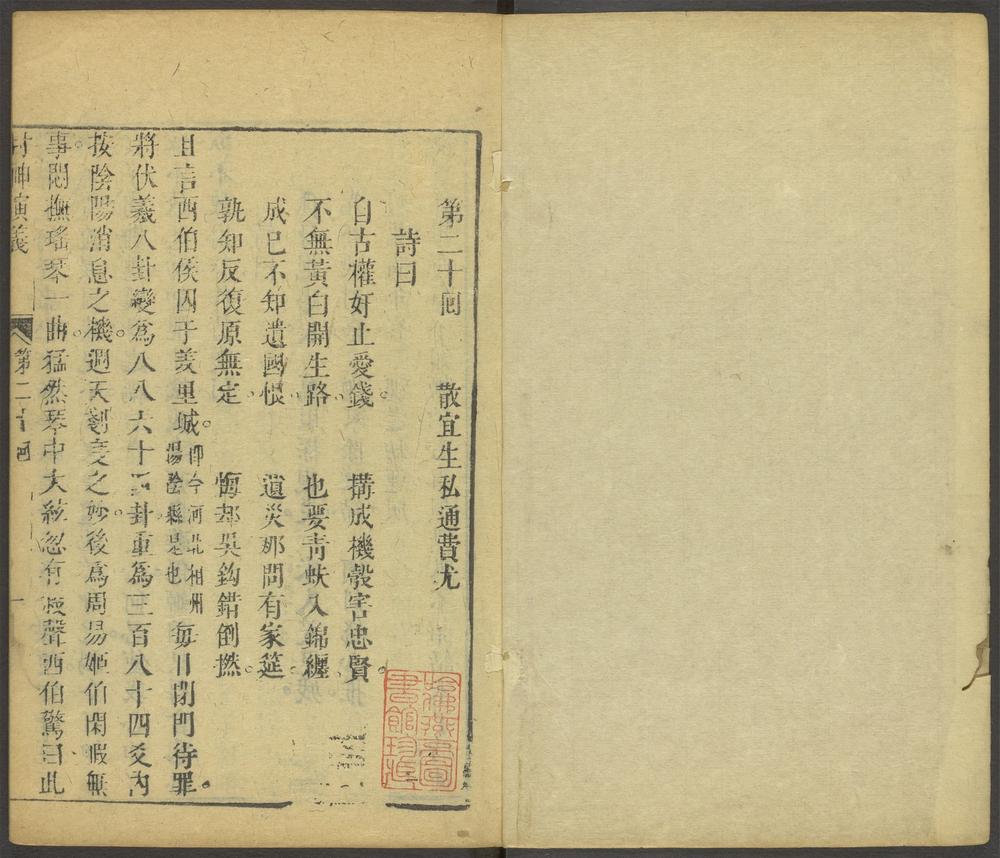 第二十回 散宜生私通費尤
詩曰
自古權奸止愛錢。構成機彀害忠賢。
不無黃白開生路。也要青蚨入錦纏。
成已不知遺國恨。遺災那問有家筵。
孰知反復原無定。悔却吳鈎錯倒撚。
且言西伯侯囚于羑里城。即今河北相州湯陰縣是也每日閉門待罪。
將伏羲八卦變爲八八六十四卦重爲三百八十四爻內
按陰陽消息之機。週天剗度之妙。後爲周易姬伯閑暇無
事悶撫瑤琴一曲。猛然琴中大絃忽有殺聲西伯驚曰此
封神演義 第二十回 一